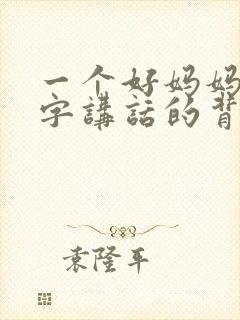 一个好妈妈
字講話的背
袁隆平